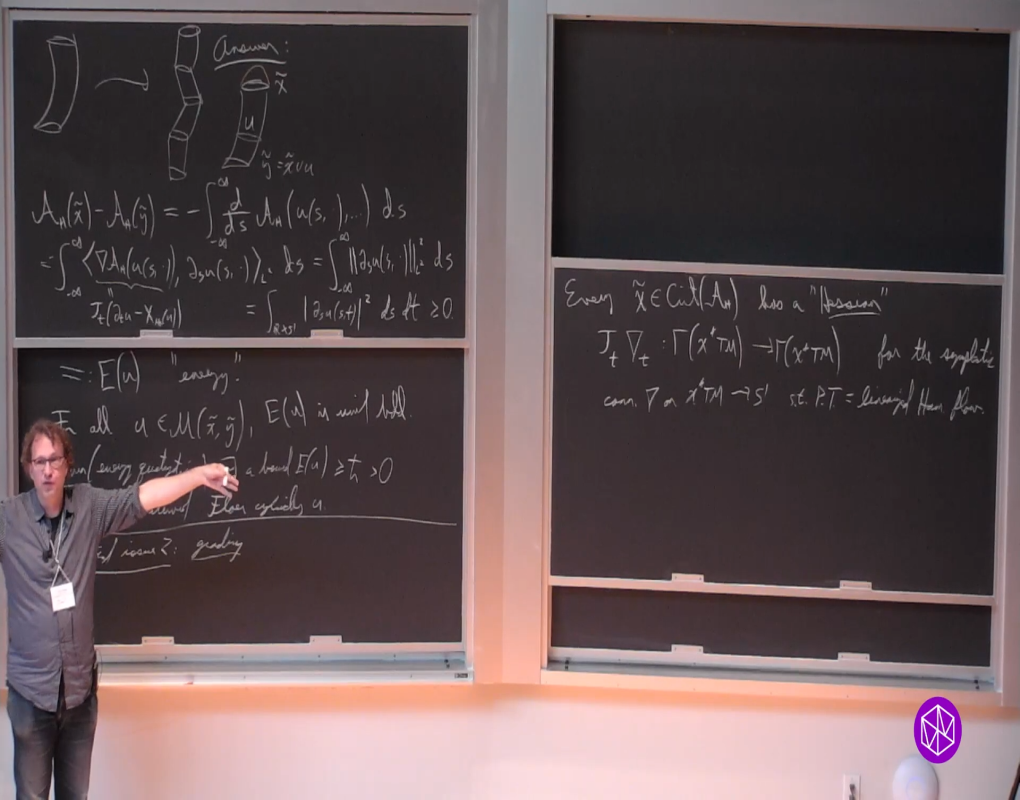 Answer:
x̃
u
ỹ = x̃ ∪ u
A_H(x̃) - A_H(ỹ) = - ∫_{-∞}^{∞} d/ds A_H(u(s,·),...) ds
= - ∫_{-∞}^{∞} ⟨∇A_H(u(s,·)), ∂_s u(s,·)⟩_{L²} ds = ∫_{-∞}^{∞} ||∂_s u(s,·)||²_{L²} ds
J_t(∂_t u - X_{H_t}(u)) = ∫_{R×S¹} |∂_s u(s,t)|² ds dt ≥ 0.
=: E(u) "energy".
For all u ∈ M(x̃, ỹ), E(u) is unif bdd.
(energy quantization) ∃ a bound E(u) ≥ ħ > 0
Floer cylinders u.
issue 2: grading
Every x̃ ∈ Crit(A_H) has a "Hessian"
J_t ∇_t : Γ(x*TM) → Γ(x*TM) for the symplectic
conn. ∇ on x*TM → S¹ s.t. P.T. = linearized Ham. flow.